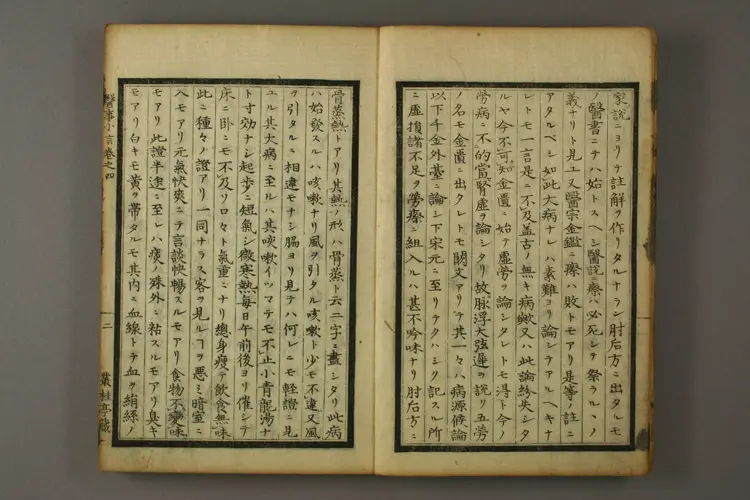 家説ニヨリテ註解ヲ作リタルナラン肘后方ニ出タルモ
ノ醫書ニテハ始トスヘシ醫説ニ療ハ必死シテ祭ラルヽノ
義ナリト見エ又醫宗金鑑ニ瘵ハ敗トモアリ是等ノ註ニ
アタルベシ如此大病ナレハ素難ヨリ論シテアルヘキナ
レトモ一言是ニ不及盖古ノ無キ病歟又ハ此論紛失シタ
ルヤ今不可知金匱ニ始テ虚労ヲ論シタレトモ得ト今ノ
労病ニ不的當腎虚ヲ論シタリ故脉浮大弦遲ヲ説リ五労
ノ名ハ金匱ニ出タレトモ闕文アリテ其一々ハ病源候論
以下千金外臺ニ論シ下宋元ニ至リテクハシク記スル所
ニ虚損諸不足ヲ勞瘵ニ組入ルハ甚不吟味ナリ肘后方ニ
骨蒸熱トアリ其熱ノ形ハ骨蒸ト云二字ニ盡シタリ此病
ハ始發スルハ咳嗽ナリ風ヲ引タル咳嗽ト少モ不違又風
ヲ引タルニ相違モナシ脇ヨリ見テハ何レニモ輕證ニ見
ユル其大病ニ至ルハ其咳嗽イツマテモ不止小青龍湯ナ
ト寸効ナシ起歩ニ短氣シ微寒熱毎日午前後ヨリ催シテ
床ニ臥ニモ不及ソロ々々ト氣重ニナリ總身瘦テ飲食無味
此ニ種々ノ證アリ一同ナラス客ヲ見ルヿヲ悪ミ暗室ニ
入モアリ元氣快爽ニテ言談快暢スルモアリ食物不變味
モアリ此證半途ニ至レハ痰ノ殊外ニ粘スルモアリ臭キ
モアリ白キモ黄ヲ帯タルモ其内ニ血線トテ血ヲ絹絲ノ
醫事小言卷之四
二
叢桂亭藏